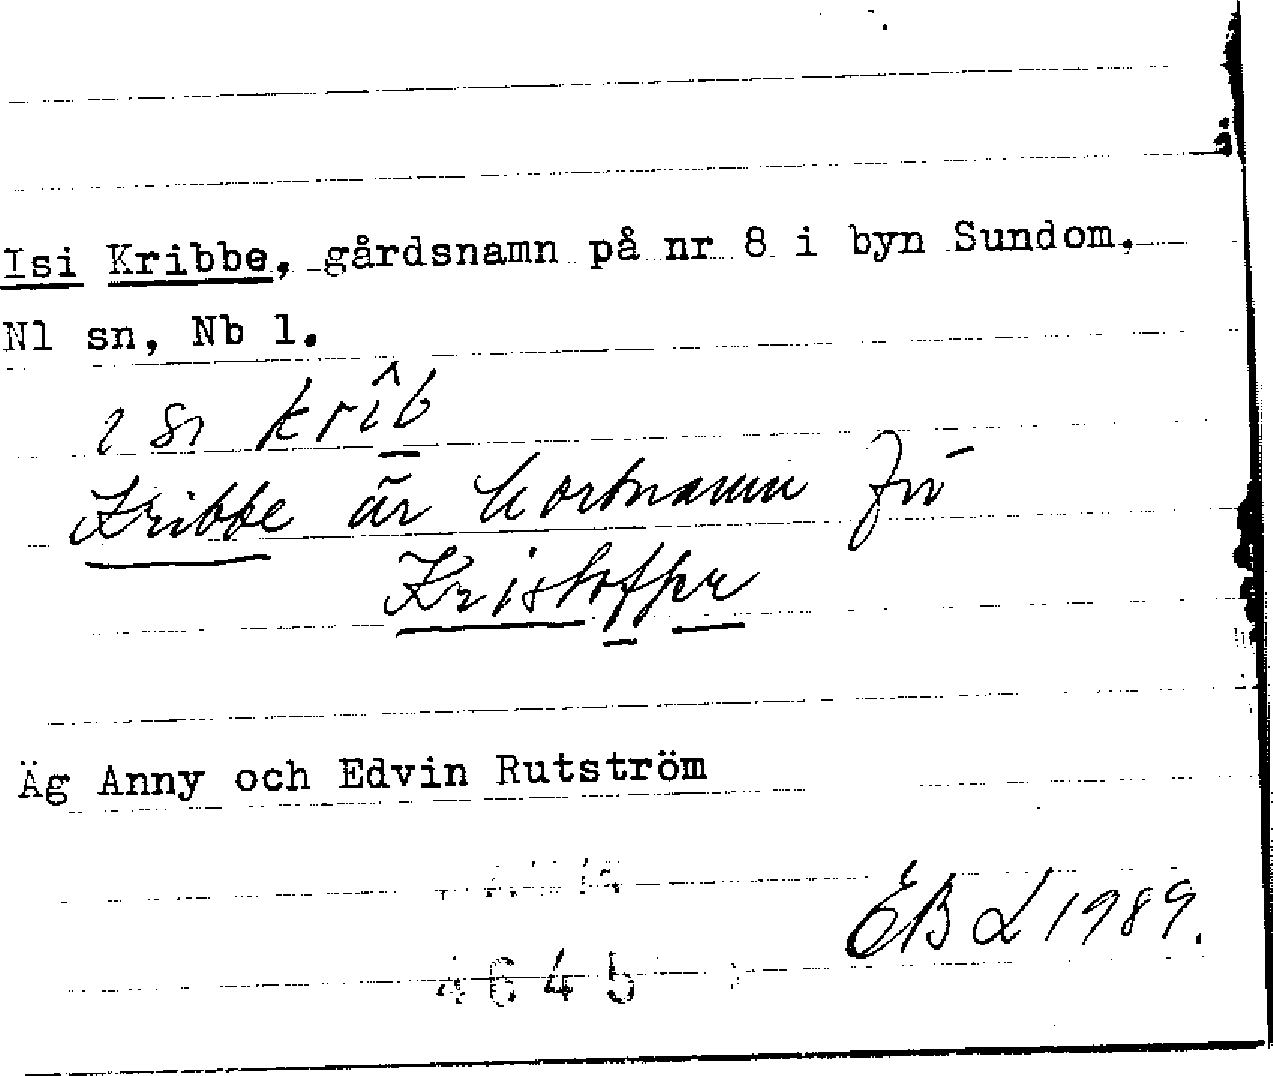 Isi Kribbe, gårdsnamn på nr 8 i byn Sundom.
Nl sn, Nb l.
krîb
Kribbe är kortnamn för
Kristoffer
Äg Anny och Edvin Rutström
EBL 1989.
4645